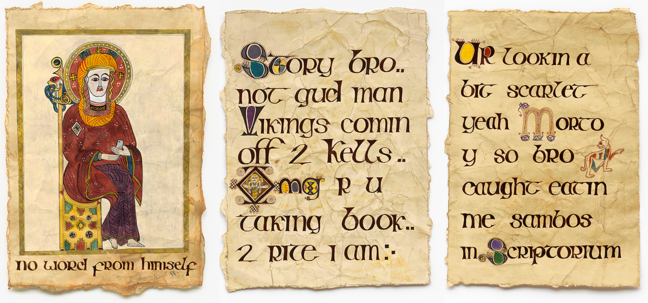 no word from himself
Story bro..
not gud man
Vikings comin
off 2 Kells ..
Omg r u
taking book..
2 rite I am :·
Ur lookin a
bit scarlet
yeah Morto
y so bro
caught eatin
me sambos
in Scriptorium